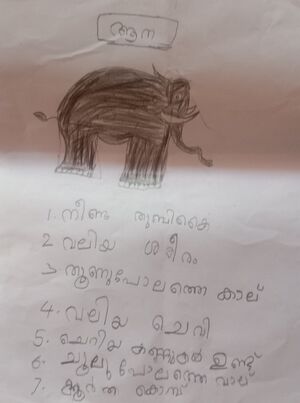 ആന
1. നീണ്ട തുമ്പികൈ
2 വലിയ ശരീരം
3 തൂണുപോലത്തെ കാല്
4. വലിയ ചെവി
5. ചെറിയ കണ്ണുകൾ ഉണ്ട്
6. ചൂലുപോലത്തെ വാല്
7. കൂർത്ത കൊമ്പ്